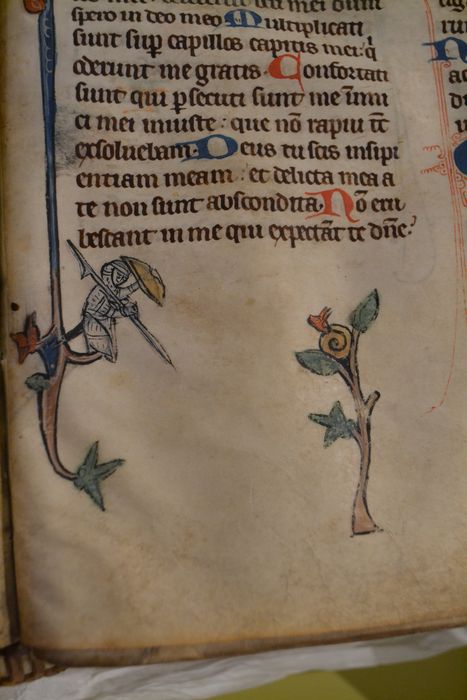 spero in deo meo Multiplicati
sunt sup capillos capitis mei: q̇
oderunt me gratis. Confortati
sunt qui ꝑsecuti sunt me īimi
ci mei iniuste: que nō rapui tc̄
exsoluebam. Deus tu scis insipi
entiam meam: et delicta mea a
te non sunt abscondita. Nō eru
bescant in me qui expectāt te dn̄e: